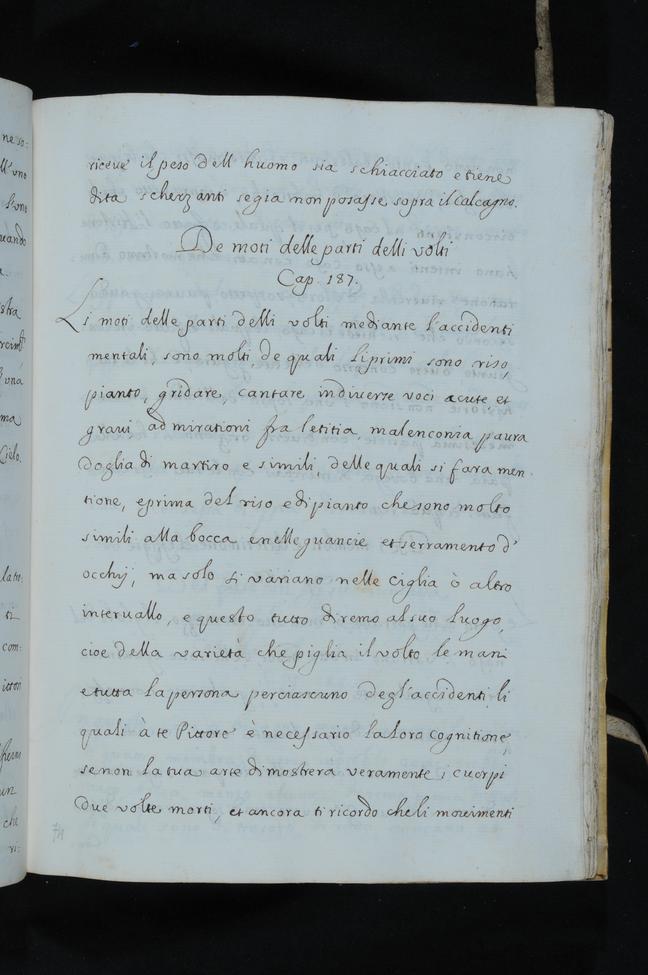 riceue il peso dell huomo sia schiacciato e tiene
dita scherzanti se gia non posasse sopra il calcagno.
De moti delle parti delli volti
Cap. 187.
Li moti delle parti delli volti mediante l'accidenti
mentali, sono molti de quali li primi sono riso,
pianto, gridare, cantare in diuerse voci acute, et
graui, admirationi fra letitia, malenconia paura
doglia di martiro e simili, delle quali si fara men
tione, e prima del riso e di pianto che sono molto
simili alla bocca e nelle guancie et serramento d'
occhij, ma solo si variano nelle ciglia ò altro
interuallo, e questo tutto diremo al suo luogo,
cioe della varietà che piglia il volto le mani
e tutta la persona per ciascuno degl'accidenti, li
quali à te Pittore è necessario la loro cognitione,
se non la tua arte dimostrera veramente i cuorpi
due volte morti, et ancora ti ricordo che li mouimenti
ne so:
dll' uno
uando
stra
z una
ma
Cielo.
la te:
ti
com:
ittori
un
che
ri: